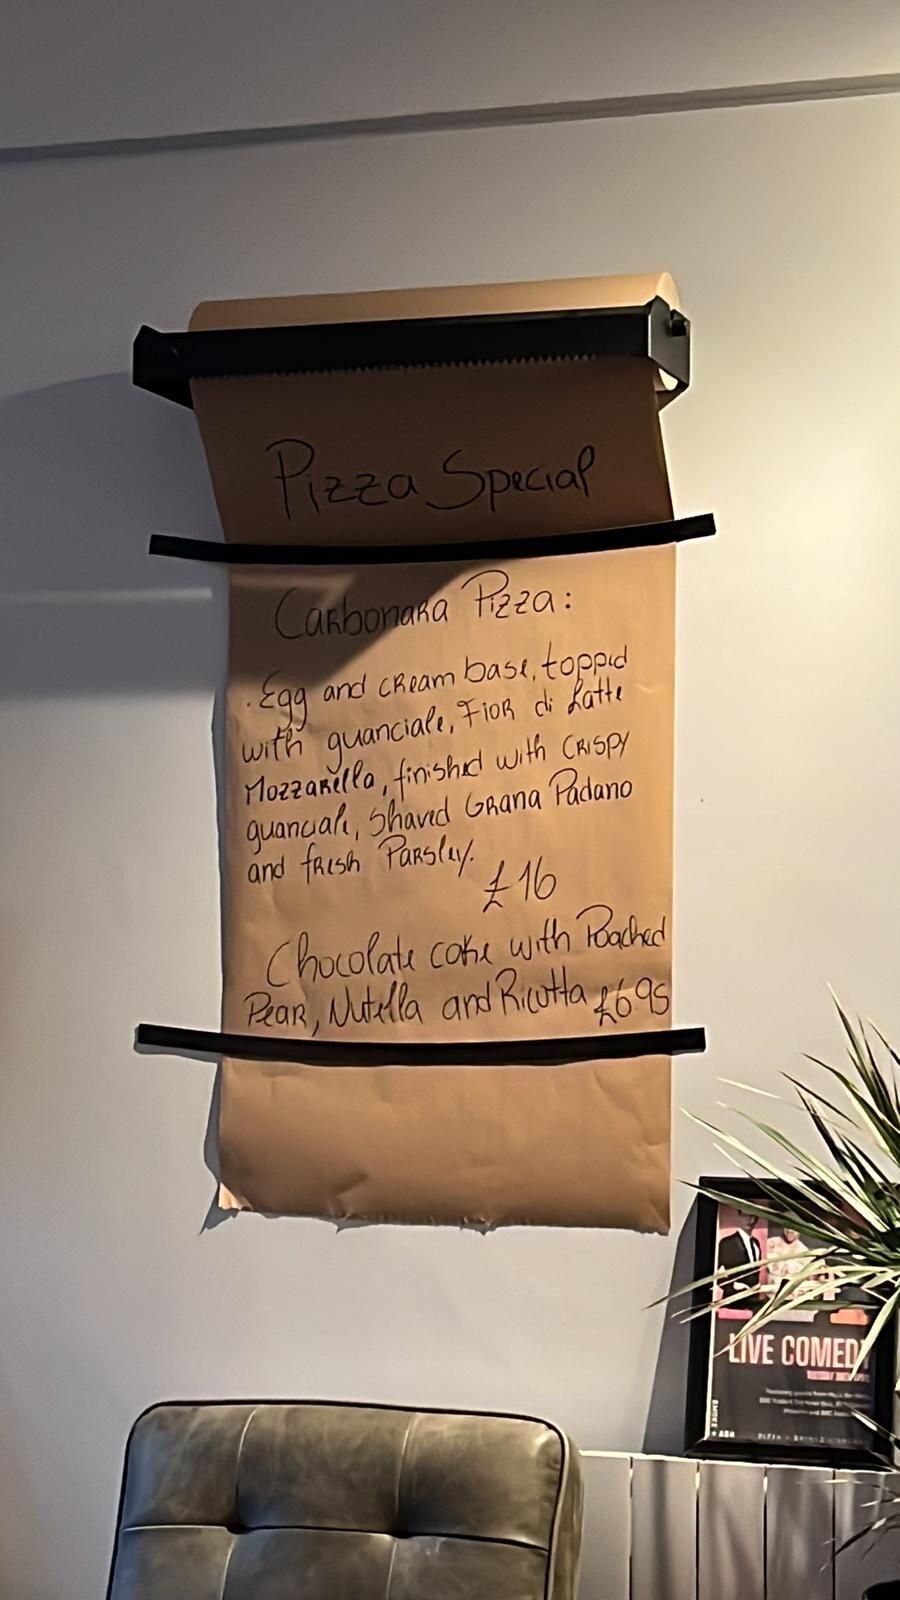 Pizza Special
Carbonara Pizza:
. Egg and cream base, topped
with guanciale, Fior di Latte
Mozzarella, finished with crispy
guanciale, shaved Grana Padano
and fresh Parsley.
£16
Chocolate cake with Poached
Pear, Nutella and Ricotta £6.95
LIVE COMEDY